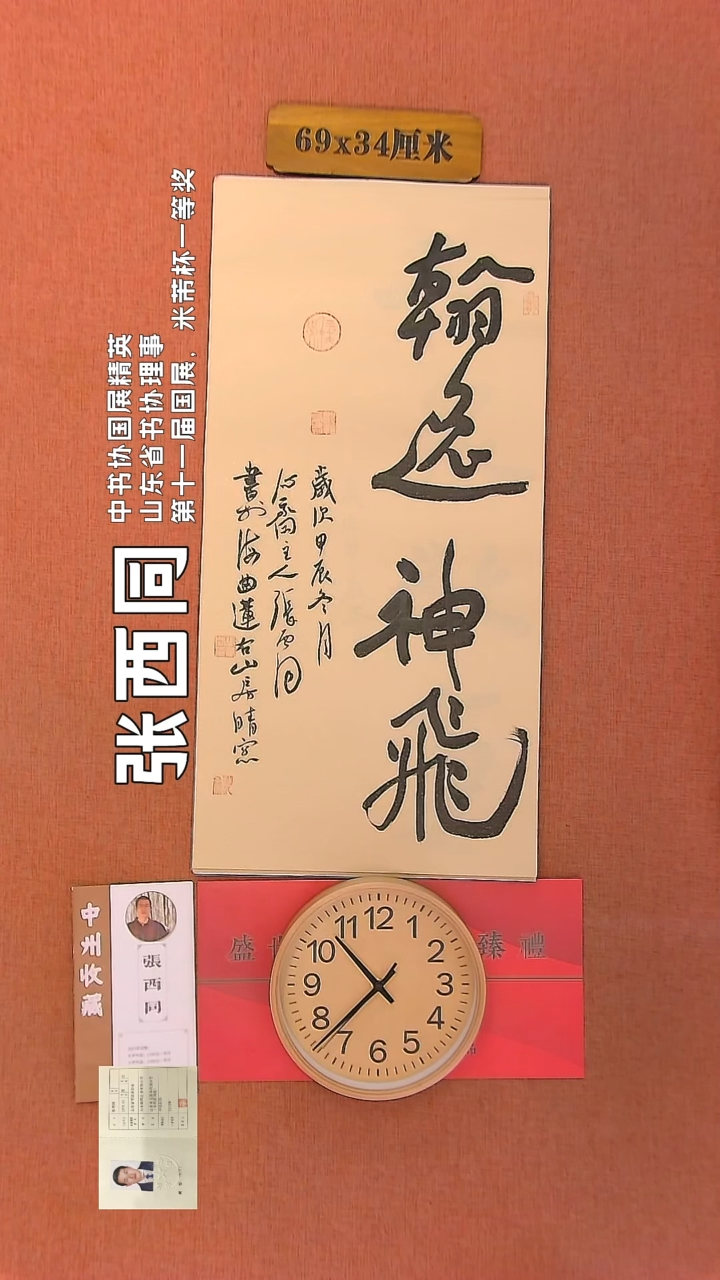 69x34厘米
翰逸神飛
歲次甲辰冬月
心齋主人張西同
書於海曲蓮右山房晴窓
中书协国展精英
山东省书协理事
第十一届国展，米芾杯一等奖
张西同
張西同
盛世
臻禮
12
1
2
3
4
5
6
7
8
9
10
11